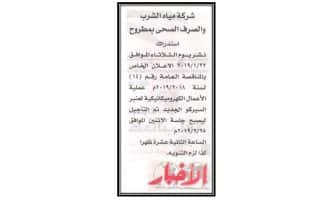 شركة مياه الشرب
والصرف الصحى بمطروح
استدراك
نشر يوم الثلاثاء الموافق
٢٠١٩/١/٢٢ الاعلان الخاص
بالمناقصة العامة رقم (١٤)
لسنة ٢٠١٩/٢٠١٨م عملية
الأعمال الكهروميكانيكية لعنبر
السيركو الجديد تم التأجيل
ليصبح جلسة الاثنين الموافق
٢٠١٩/٢/٢٥م
الساعة الثانية عشرة ظهرا
لذا لزم التنويه.
الأخبار